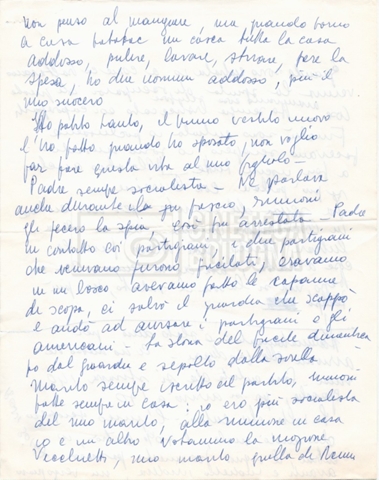 Non penso al mangiare, ma quando torno
a casa patatac mi casca tutta la casa
addosso, pulire, lavare, stirare, fare la
spesa, ho due uomini addosso, più il
mio suocero
Ho patito tanto, il primo vestito nuovo
l'ho fatto quando ho sposato, non voglio
far fare questa vita al mio figliolo –
Padre sempre socialista – Ne parlava
anche durante la guerra fascio, riunioni
gli fecero la spia, così fu arrestato – Padre
in contatto coi partigiani, i due partigiani
che venivano furono fucilati, eravamo
in un bosco avevamo fatto le capanne
di scopa, ci salvò il guardia che scappò
e andò ad avvisare i partigiani o gli
americani – La storia del fucile dimentica
to dal guardia e sepolto dalla sorella
Marito sempre iscritto al partito, riunioni
fatte sempre in casa: io ero più socialista
del mio marito, alla riunione in casa
io e un altro votammo la mozione
Vecchietti, mio marito quella di Nenni